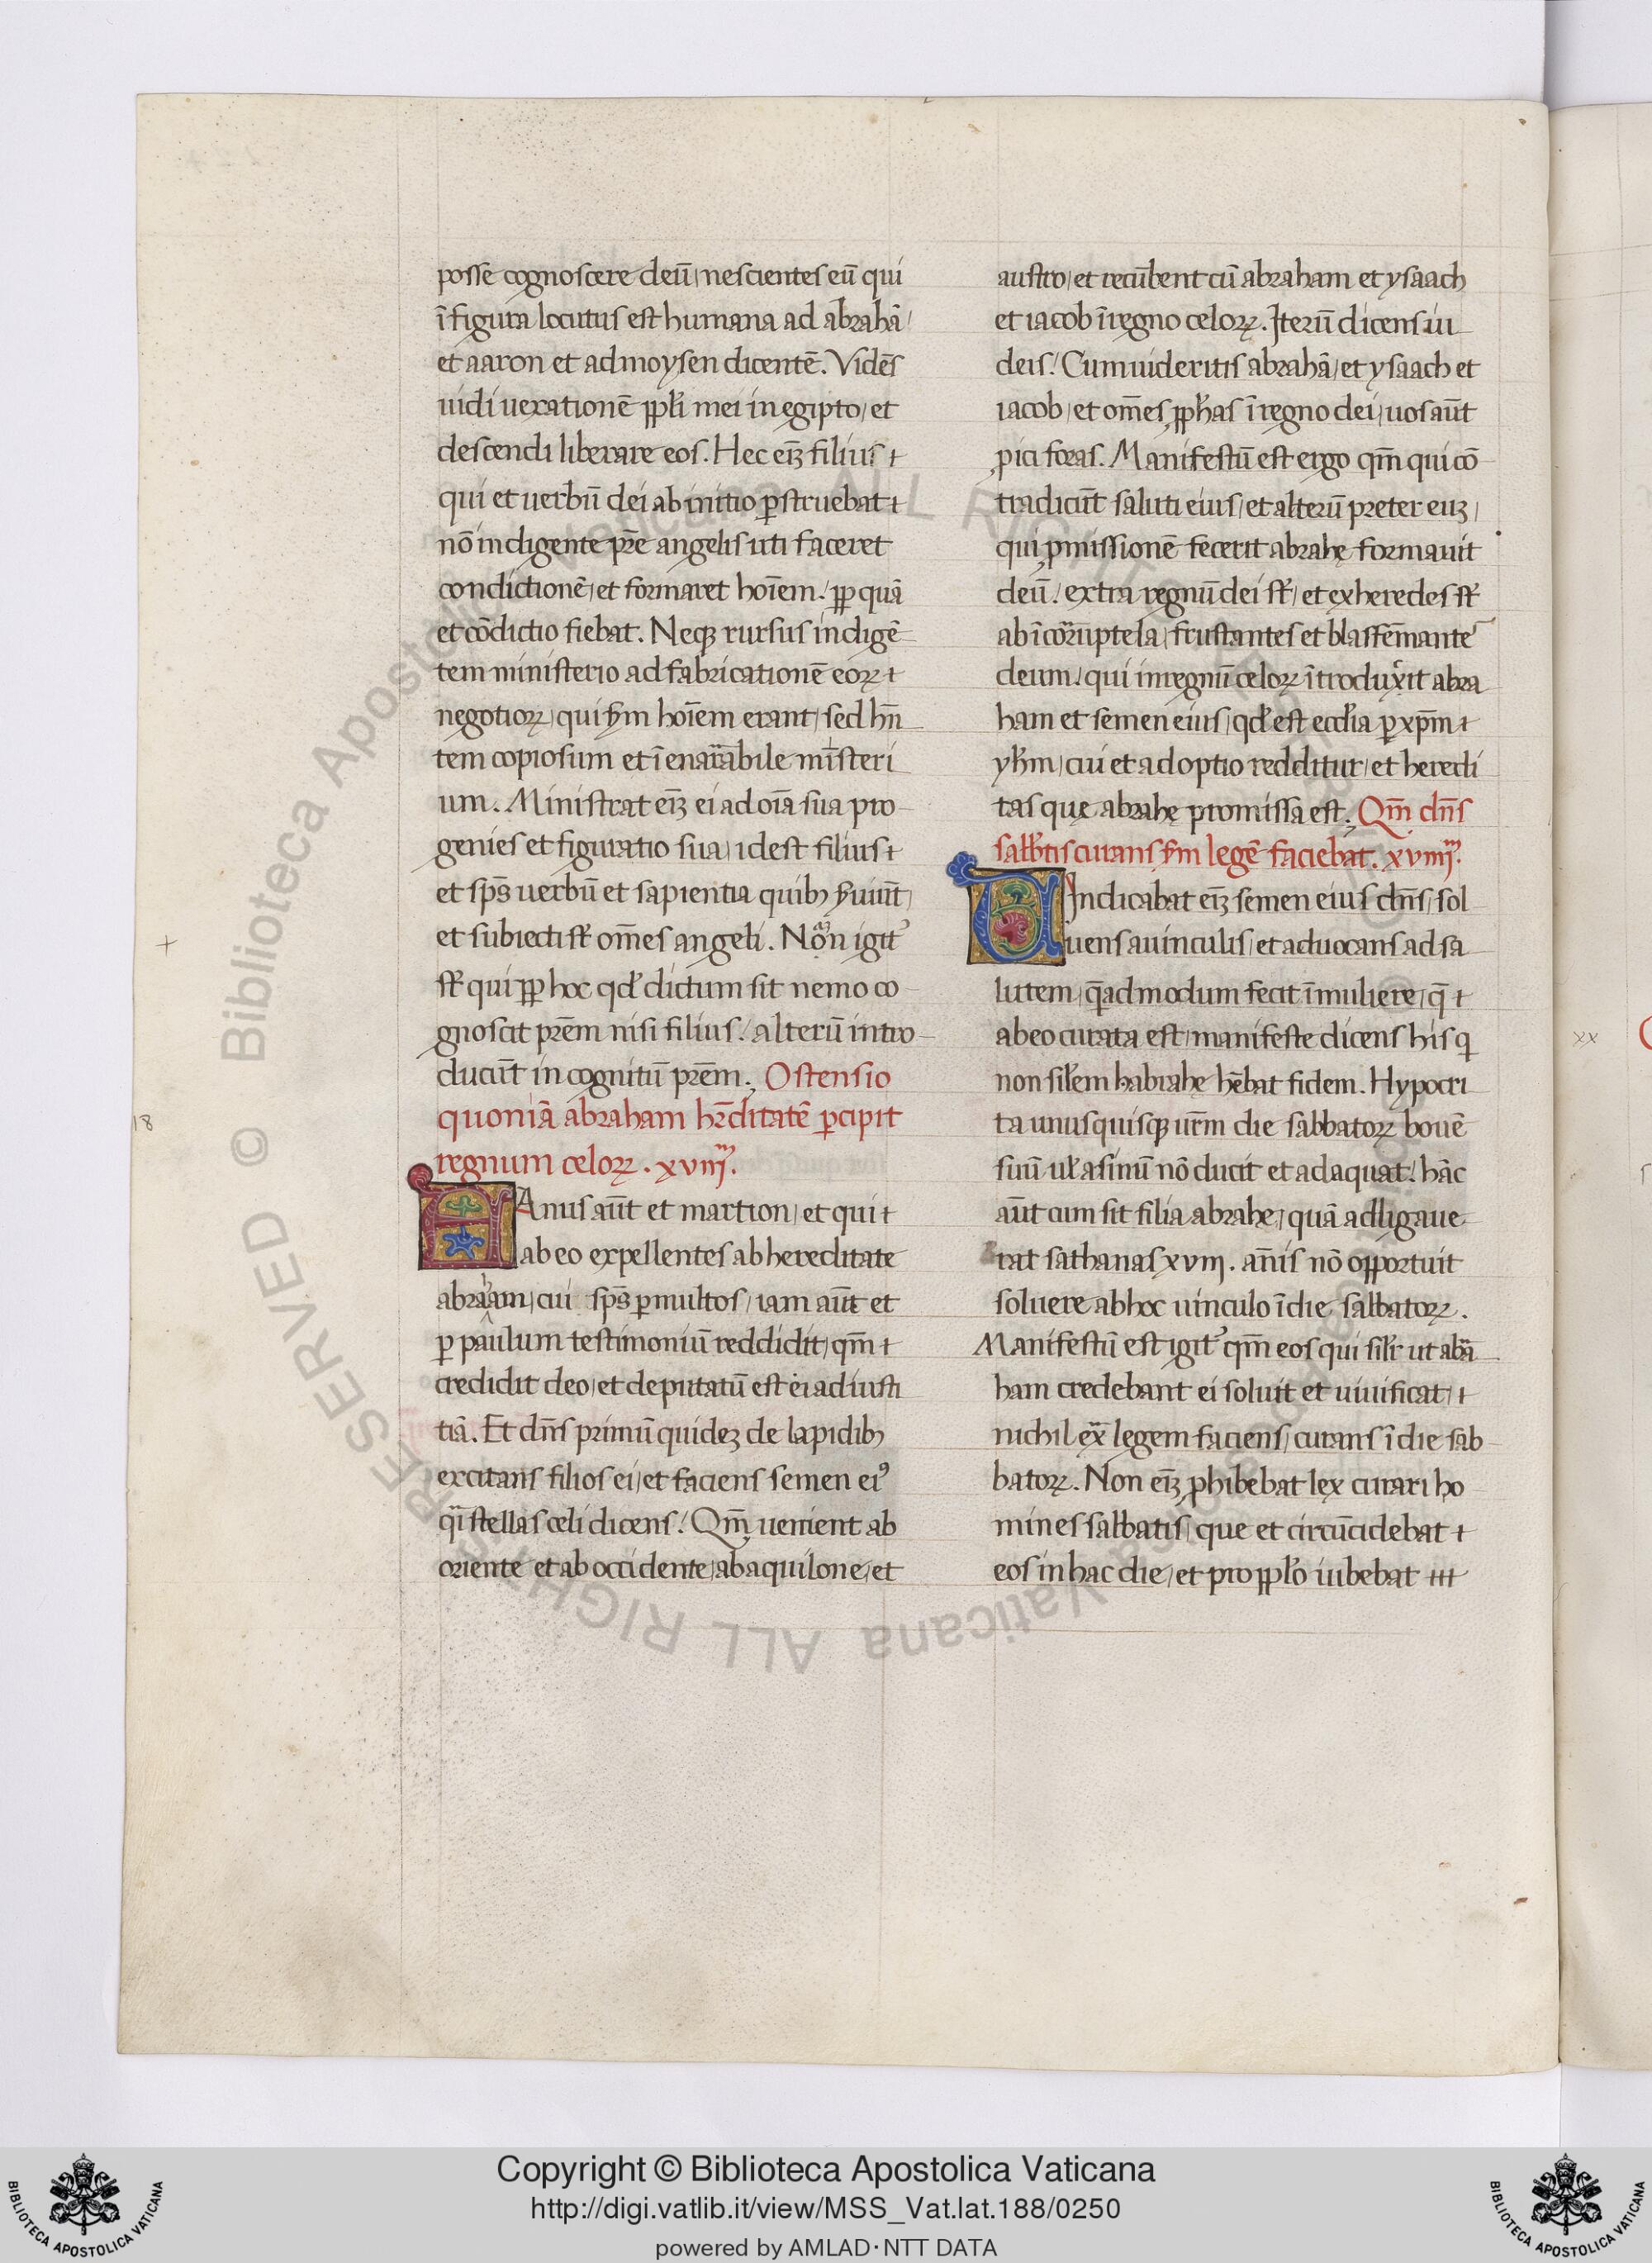 posse cognoscere deū, nescientes eū qui
ī figura locutus est humana ad abrahā,
et aaron et ad moysen dicentē. Vidēs
uidi uexationē ppłi mei in egipto, et
descendi liberare eos. Hec eī filius
qui et uerbū dei ab initio p̱struebat
nō indigente pr̄e angelis uti faceret
condictionē, et formaret hoīem, pp quā
et cōdictio fiebat. Neqꝫ rursus indigē
tem ministerio ad fabricationē eoꝝ
negotioꝝ, qui ẜm hoīem erant, sed hn̄
tem copiosum et īenarrabile mīsteri
um. Ministrat eīꝫ ei ad oīa sua pro
genies et figuratio sua, idest filius
et sp̄s uerbū et sapientia quibꝫ ẜuiūt,
et subiecti sť om̄es angeli. igiť
sť qui pp hoc qđ dictum sit nemo co
gnoscit pr̄em nisi filius, alterū intro
ducūt incognitū pr̄em. Ostensio
quoniā abraham hr̄ditatē ꝑcipit
regnum celoꝝ. xviij.
Anus aūt et martion, et qui
ab eo expellentes ab hereditate
abraham, cui sp̄s ꝑ multos, iam aūt et
ꝑ paulum testimoniū reddidit, qm̄
credidit deo, et deputatū est ei ad iusti
tiā. Et dn̄s primū quideꝫ de lapidibꝫ
excitans filios ei, et faciens semen eiꝰ
q̄i stellas celi dicens. Qm̄ uenient ab
oriente et ab occidente, ab aquilone, et
austro, et recūbent cū abraham et ysaach
et iacob ī regno celoꝝ. Iterū dicens iu
deis. Cum uideritis abrahā, et ysaach et
iacob, et om̄es ꝓphas ī regno dei, uos aūt
ꝓici foras. Manifestū est ergo qm̄ qui cō
tradicūt saluti eius, et alterū preter euꝫ,
qui ꝓmissionē fecerit abrahę formauit
deū, extra regnū dei sť, et exheredes sť
ab īcorruptela, frustantes et blasfēmantes
deum, qui in regnū celoꝝ ītroduxit abra
ham et semen eius, qđ est ecclia ꝑ xp̄m
yhm, cui et adoptio redditur, et heredi
tas quę abrahę promissa est. Qm̄ dn̄s
sabbtis curans ẜm legē faciebat. xviiij.
Vindicabat eīꝫ semen eius dn̄s, sol
uens a uinculis, et aduocans ad sa
lutem, q̄admodum fecit ī muliere, q̄
ab eo curata est, manifeste dicens his q
non silem habrahę hēbat fidem. Hypocri
ta unusquisqꝫ ur̄m die sabbatoꝝ bouē
suū uł asinū nō ducit et adaquat, hāc
aūt cum sit filia abrahe, quā adligaue
rat sathanas xviij. an̄is nō opportuit
soluere ab hoc uinculo ī die sabbatoꝝ.
Manifestū est igiť qm̄ eos qui silr ut abra
ham credebant ei soluit et uiuificat,
nichil extra legem faciens, curans ī die sab
batoꝝ. Non eīꝫ ꝓhibebat lex curari ho
mines sabbatis, que et circūcidebat
eos in hac die, et pro pplo iubebat
18
xx
Copyright © Biblioteca Apostolica Vaticana
http://digi.vatlib.it/view/MSS_Vat.lat.188/0250
powered by AMLAD·NTT DATA
BIBLIOTECA APOSTOLICA VATICANA
BIBLIOTECA APOSTOLICA VATICANA
© Biblioteca Apostolica Vaticana ALL RIGHTS RESERVED